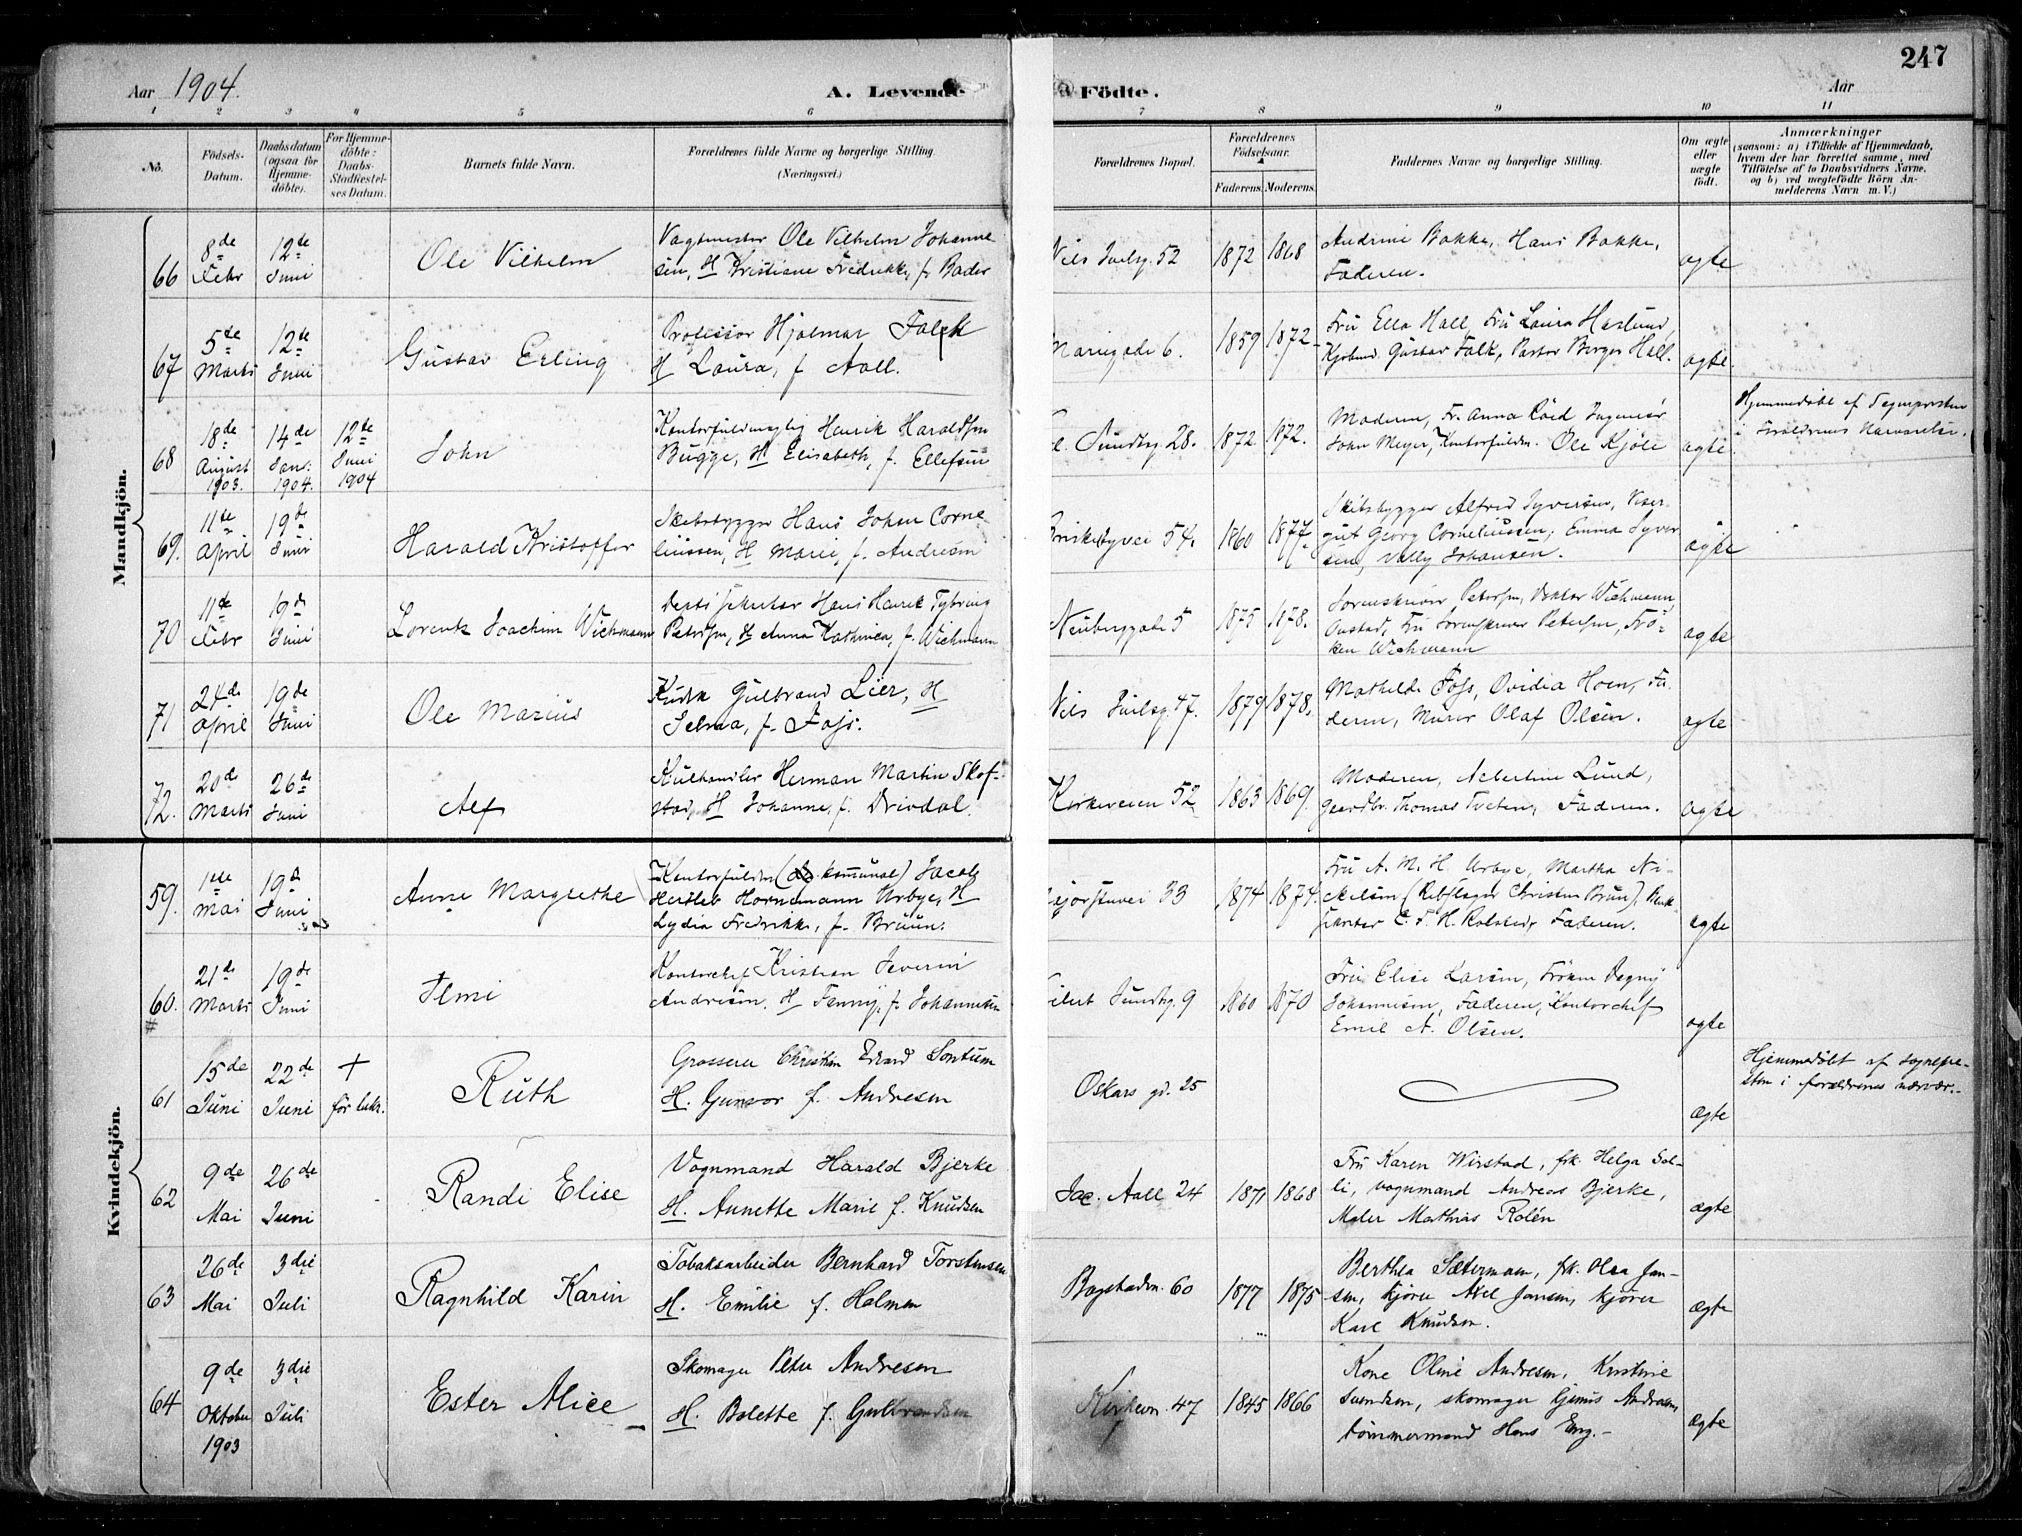 247
Aar 1904.
A. Levende
Födte.
Aar
1 2 3 4 5 6 7 8 9 10 11
No.
Födsels-
Datum.
Daabsdatum
(ogsaa for
Hjemme-
döbte).
For Hjemme-
döbte:
Daabs-
Stadfæstel-
ses Datum.
Barnets fulde Navn.
Forældrenes fulde Navne og borgerlige Stilling.
(Næringsvei.)
Forældrenes Bopæl.
Forældrenes
Födselsaar.
Faderens. Moderens.
Faddernes Navne og borgerlige Stilling.
Om ægte
eller
uægte
født.
Anmærkninger
(saasom: a) i Tilfælde af Hjemmedaab,
hvem der har forrettet samme, med
Tilföielse af to Daabsvidners Navne,
og b) ved uægtefödte Börn An-
melderens Navn m. V.)
Mandkjön.
66
8de Febr
12te Juni
Ole Vilhelm
Vagtmester Ole Vilhelm Johanne-
sen, H Kristiane Fredrikke, f. Bader
Niels Juelsg. 52
1872 1868
Andrine Bakke, Hans Bakke,
Faderen.
ægte
67
5de Marts
12te Juni
Gustav Erling
Professor Hjalmar Falck
H Laura, f Aall.
1859 1872
Fru Ella Hall, Fru Laura Haslund,
Kjøbmd. Gustav Falk, Pastor Berger Hall.
ægte.
68
18de August 1903.
14de Jan. 1904.
12te Juni 1904
John
Kontorfuldmægtig Henrik Haraldsen
Bugge, H Elisabeth, f. Ellefsen
Sundtsg 28.
1872 1872.
Moderen, Fr. Anna Röed Ingeniör
John Meyer, Kontorfuldm. Ole Kjöle
ægte.
Hjemmedöbt af Sognepresten
i Foreldrenes Nærværelse.
69.
11te April
19de Juni
Harald Kristoffer
Skibsbygger Hans Johan Corne-
liussen, H Marie, f. Andresen
Briskebyvei 54.
1860 1877
Skibsbygger Alfred Syversen, Viser-
gut Georg Corneliussen, Emma Syver
sen, Vally Johansen.
ægte
70
11te Febr
19de Juni
Lorentz Joachim Wichmann
Hans Henrik Tybring
Petersen, H Anna Kathinca, f. Wichmann
Neuberggade 5
1875 1878.
Sorenskriver Petersen, Doktor Wichmann,
Onstad, Fru Sorenskriver Petersen, Frö-
ken Wichmann
ægte
71
24de April
19de Juni
Ole Marius
Kudsk Gulbrand Lier, H
Selma, f. Fojs.
Niels Juelsg. 47.
1879 1878.
Mathilde Fojs, Ovidia Hoen, Fa-
deren, Murer Olaf Olsen.
ægte
72.
20de Marts
26de Juni
Alf
Kulhandler Herman Martin Skof-
stad, H Johanne, f. Drivdal.
Kirkeveien 52
1863 1869.
Moderen, Albertine Lund,
Gaardbr. Thomas Tveten, Faderen.
ægte
Kvindekjön.
59.
1ste Mai
19de Juni
Anne Margrethe
Kontorfuldm (kommunal) Jacob
Hersleb Hornemann Urbye, H
Lydia Fredrikke, f. Bruun.
33
1874 1874.
Fru A. M. H Urbye, Martha Ni-
ckelsen (Rebslager Christen Bruun),
C. F. H. Rolsted, Faderen.
ægte
60.
#
21de Marts
19de Juni
Kontorchef Kristian Severin
Andresen. H Fanny, f. Johannesen
Eilert Sundtsg. 9
1860 1870
Fru Elise Larsen, Fröken Dagny
Johannesen, Faderen, Kontorchef
Emil A. Olsen.
ægte
61
15de Juni
22de Juni
+
Ruth
Grosserer Christian Edvard Sontum
H. Gunvor f. Andresen
Oskars gd. 25
ægte
Hjemmedöbt af sognepre-
sten i forældrenes nærvær.
62
9de Mai
26de Juni
Randi Elise
Vognmand Harald Bjerke
H. Annette Marie f. Knudsen
Jac. Aall 24
1871 1868
Fru Karen Wirstad, frk. Helga Sol-
li, vognmand Andreas Bjerke,
Maler Mathias Rolén
ægte
63
26de Mai
3die Juli
Ragnhild Karin
Tobaksarbeider Bernhard Torstensen
H. Emilie f. Holmen
Bogstadvn. 60
1877 1875
Berthea Sæterman, frk. Olea Jan-
sen, kjører Axel Jansen, kjører
Karl Knudsen.
ægte
64
9de Oktober 1903
3die Juli
Ester Alice
Skomager Peter Andresen
H. Bolette f. Gulbrandsen
Kirkevn. 47
1845 1866
Kone Oline Andresen, Kristine
Svendsen, skomager Andresen,
tømmermand Hans Eng.
ægte